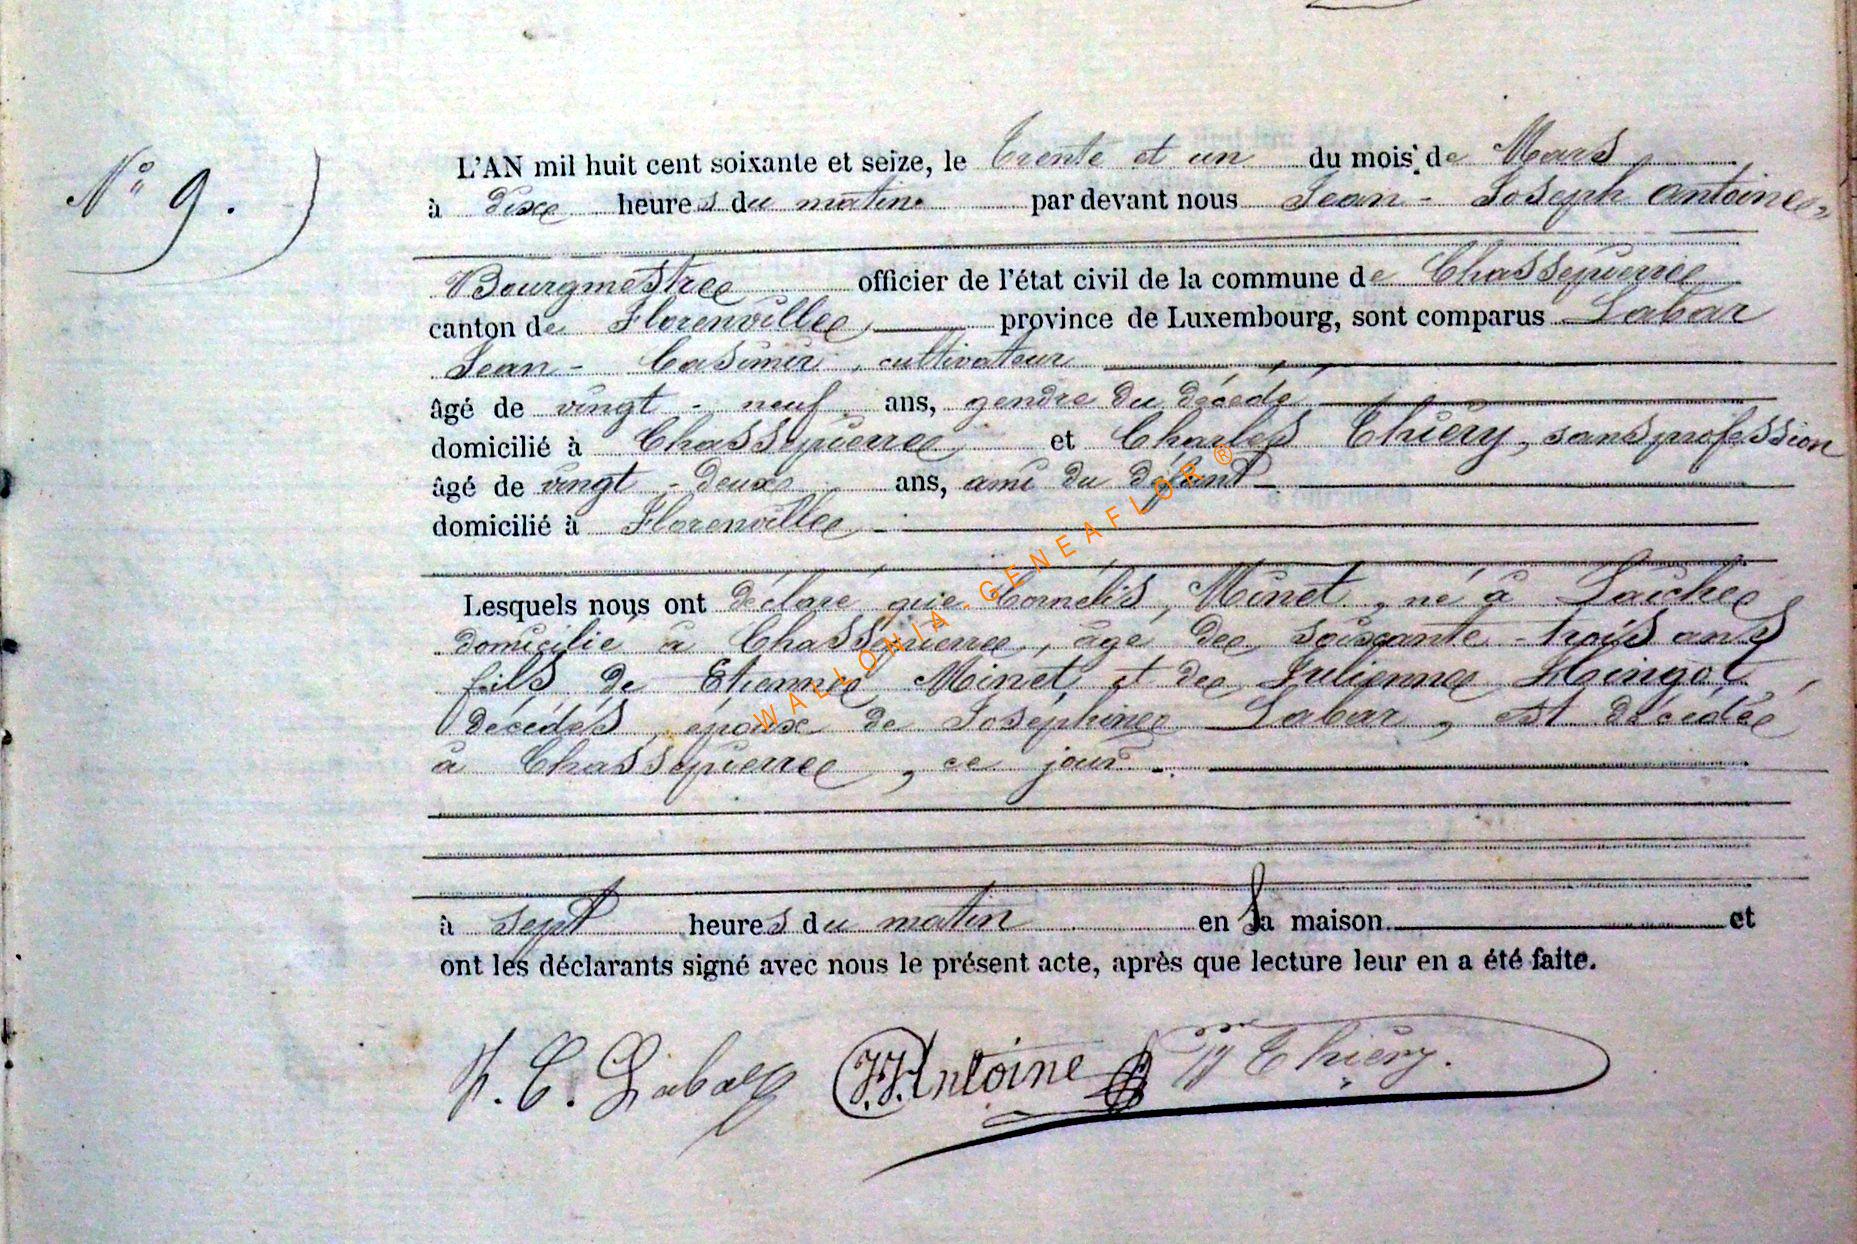 N° 9.
L'AN mil huit cent soixante et seize, le Trente et un du mois de Mars
à dixe heures du matin par devant nous Jean - Joseph Antoine,
Bourgmestre officier de l'état civil de la commune de Chassepierre
canton de Florenville, province de Luxembourg, sont comparus Labar
Jean - Casimir, cultivateur
âgé de vingt - neuf ans, gendre du décédé
domicilié à Chassepierre et Charles Thiéry, sans profession
âgé de vingt - deux ans, ami du défunt
domicilié à Florenville
Lesquels nous ont déclaré que Cornélis, Minet, né à Laiche
domicilié à Chassepierre, âgé de soixante - trois ans
fils de Etienne Minet, et de Julienne
décédés, époux de Joséphine Labar, est décédé
à Chassepierre, ce jour
à sept heures du matin en sa maison et
ont les déclarants signé avec nous le présent acte, après que lecture leur en a été faite.
J. C. Labar J.J. Antoine Thiéry.
WALLONIA.GENEAFLOR ®